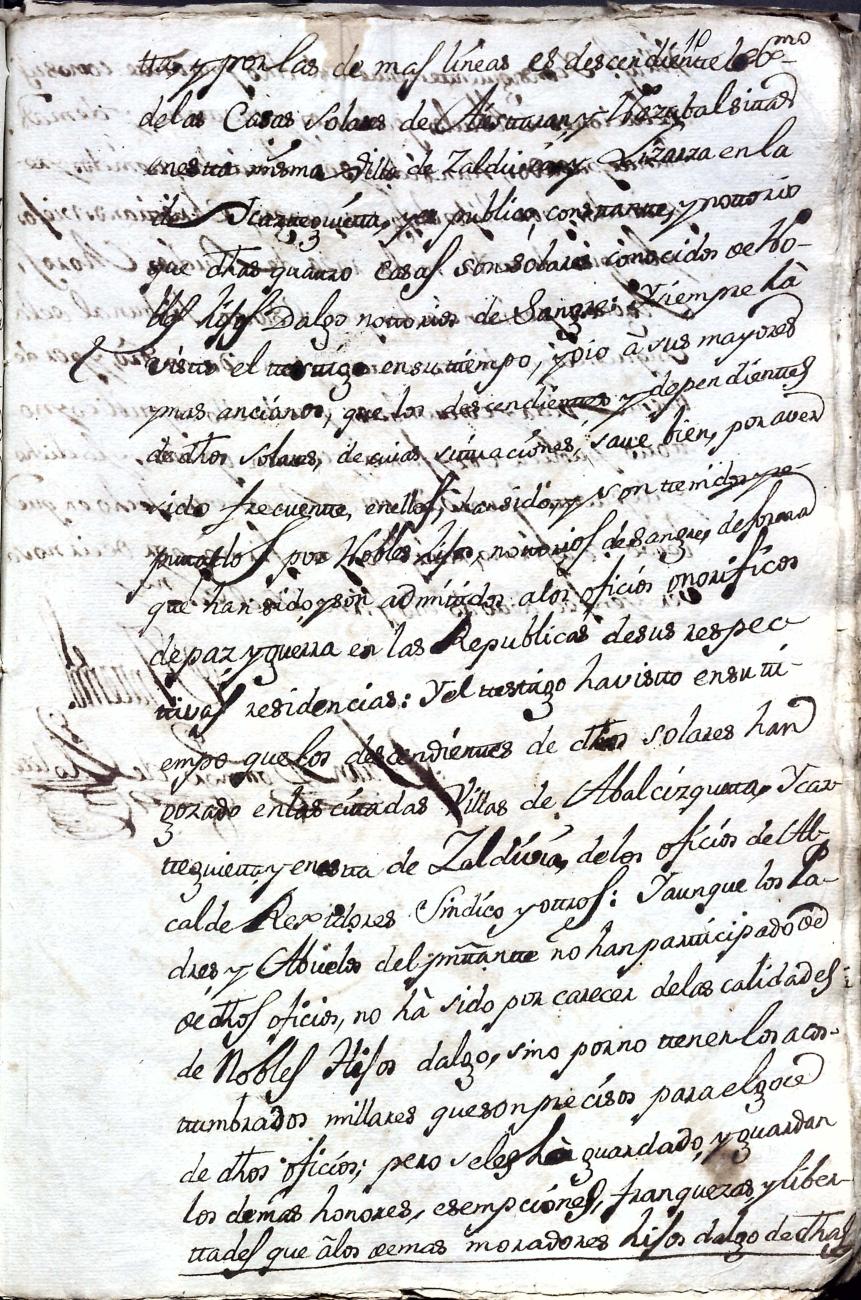 10
tta y por las de mas líneas es descendiente lexmo
delas Casas solares de y sitas
enesta misma Villa de Zaldivia, y Lizarza en la
de Ycazteguietta, y es publico, constante, y notorio
que dhas quatro casas son solares conocidos de No-
bles hijos Dalgo notorios de Sangre; y siempre hà
visto el testigo en su tiempo, y oio à sus mayores
y mas ancianos, que los descendientes y dependientes
de dhos solares, de cuias situaciones, save bien, por aver
sido frecuente, enellos, han sido, y son tenidos y re-
puttados por Nobles hijos, notorios de sangre, de forma
que han sido y son admitidos alos oficios onorificos
de paz y guerra en las Republicas de sus respec-
tivas residencias: Y el testigo ha visto en su ti-
empo que los descendientes de dhos solares han
gozado en las citadas Villas de Abalcizquetta, Ycaz-
teguietta, y enesta de Zaldivia, delos oficios de Al-
calde Rexidores Sindico y ottros: Y aunque los Pa-
dres y Abuelos del pnttante no han participado de
de dhos oficios, no hà sido por carecer delas calidades
de Nobles Hijos dalgo, sino por no ttener los acos-
tumbrados millares que son precisos para el goce
de dhos oficios; pero seles hà guardado, y guardan
los demas honores, esempciones, franquezas, y liber-
ttades que àlos demas moradores hijos dalgo de dhas